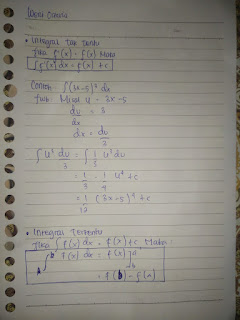 • Integral Tak Tentu
Jika F'(x) = f(x) Maka
∫ f(x) dx = F(x) + c
Contoh : ∫(3x-5)³ dx
Jwb. Misal u = 3x-5
du/dx = 3
dx = du/3
∫ u³ du/3 = ∫ 1/3 u³ du
= 1/3 . 1/4 u⁴ + c
= 1/12 (3x-5)⁴ + c
• Integral Tertentu
Jika ∫ f(x) dx = F(x) + c Maka :